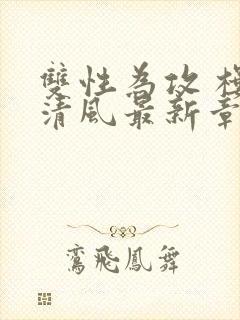 雙性為攻 
清風最新章
鸞飛鳳舞